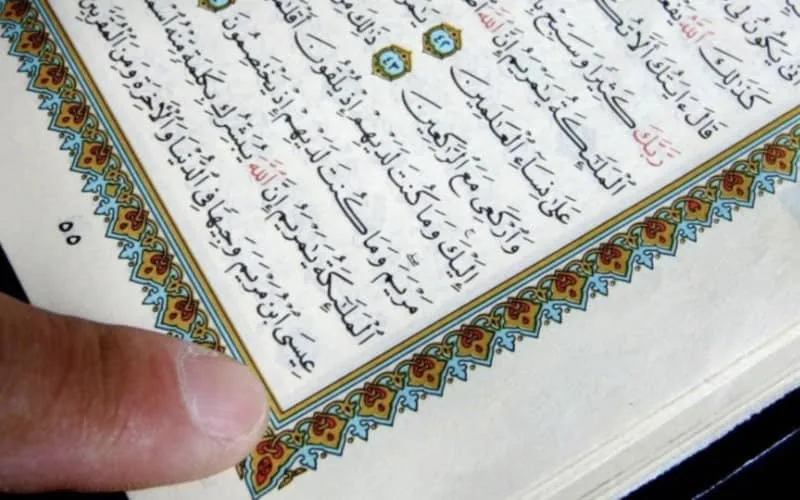 أَنَّىٰ يَكُونُ لِي
كَذَٰلِكَ ٱللَّهُ
قَالَ ءَايَتُكَ
رَبَّكَ كَثِيرًا وَسَبِّحْ
ٱلْمَلَٰٓئِكَةُ يَٰمَرْيَمُ إِنَّ ٱللَّهَ
عَلَىٰ نِسَآءِ ٱلْعَٰلَمِينَ ٤٢
وَٱرْكَعِي مَعَ ٱلرَّٰكِعِينَ ٤٣ ذَٰلِكَ مِنْ
إِلَيْكَ وَمَا كُنتَ لَدَيْهِمْ إِذْ يُلْقُونَ
مَرْيَمَ وَمَا كُنتَ لَدَيْهِمْ إِذْ يَخْتَصِمُونَ
ٱلْمَلَٰٓئِكَةُ يَٰمَرْيَمُ إِنَّ ٱللَّهَ يُبَشِّرُكِ بِكَلِمَةٍ مِّنْهُ
عِيسَى ٱبْنُ مَرْيَمَ وَجِيهًا فِي ٱلدُّنْيَا وَٱلْءَاخِرَةِ وَمِنَ ٱلْمُقَرَّبِينَ
٥٥